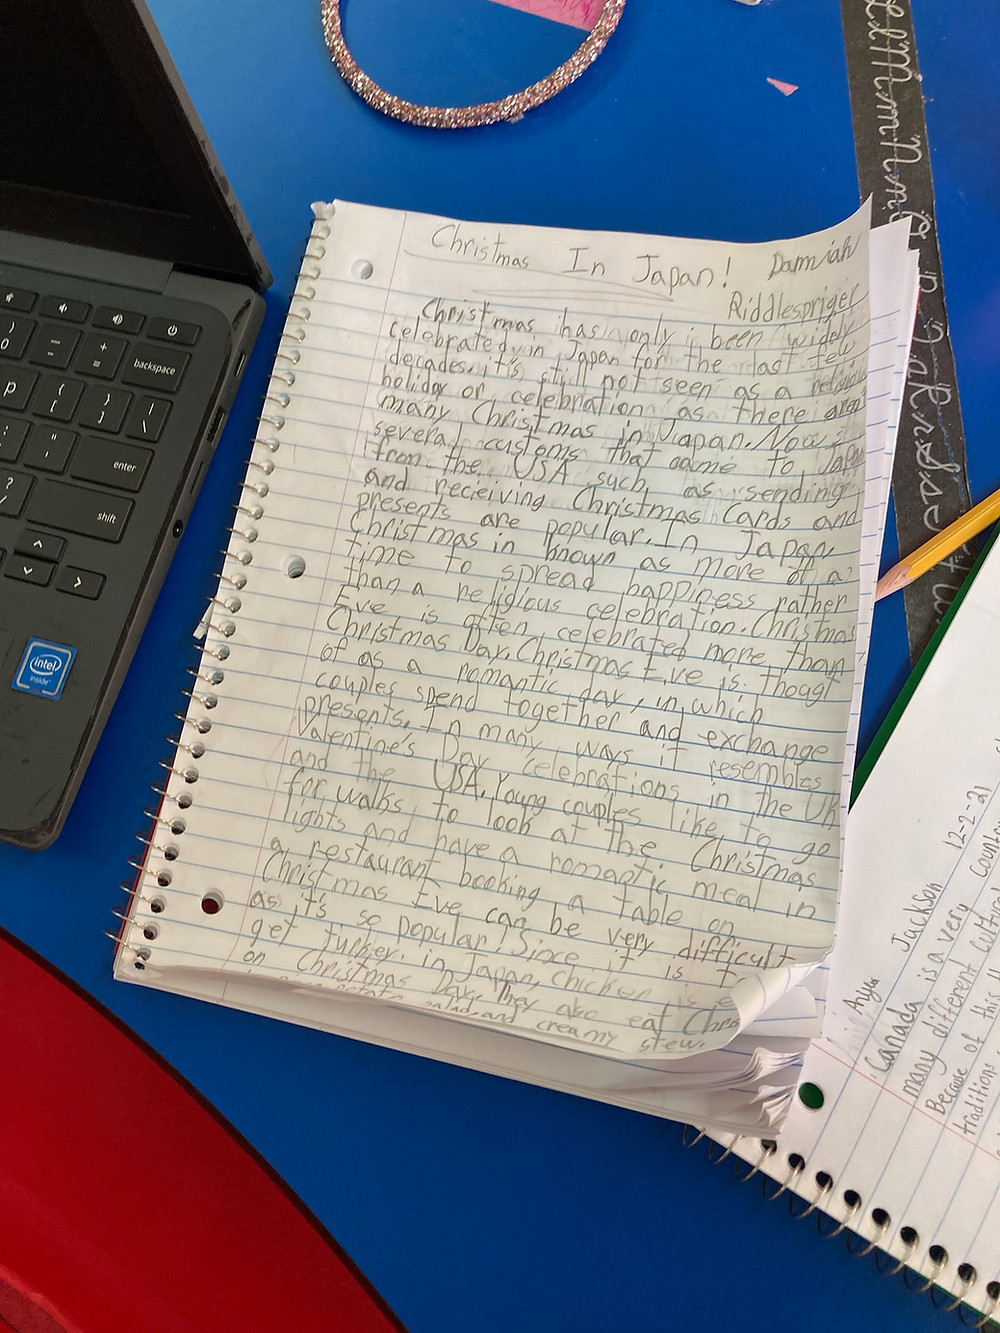 Christmas In Japan! Damiah
Riddlespriger
Christmas has only been widely
celebrated in Japan for the last few
decades. it's still not seen as a religious
holiday or celebration as there aren't
many Christmas in Japan. Now
several customs that came to Japan
from the USA such as sending
and recieving Christmas Cards and
presents are popular. In Japan,
Christmas in known as more of a
time to spread happiness rather
than a religious celebration. Christmas
Eve is often celebrated more than
Christmas Day. Christmas Eve is thoagt
of as a romantic day, in which
couples spend together and exchange
presents. In many ways it resembles
Valentine's Day celebrations in the UK
and the USA. Young couples like to go
for walks to look at the Christmas
lights and have a romantic meal in
a restaurant booking a table on
Christmas Eve can be very difficult
as it's so popular! Since it is
get turkey. in Japan, chicken is
on Christmas Day. They also eat
potato salad and creamy stew.
backspace
enter
shift
intel
inside
Anya Jackson 12-2-21
Canada is a very
many different cultural
Because of this
traditions